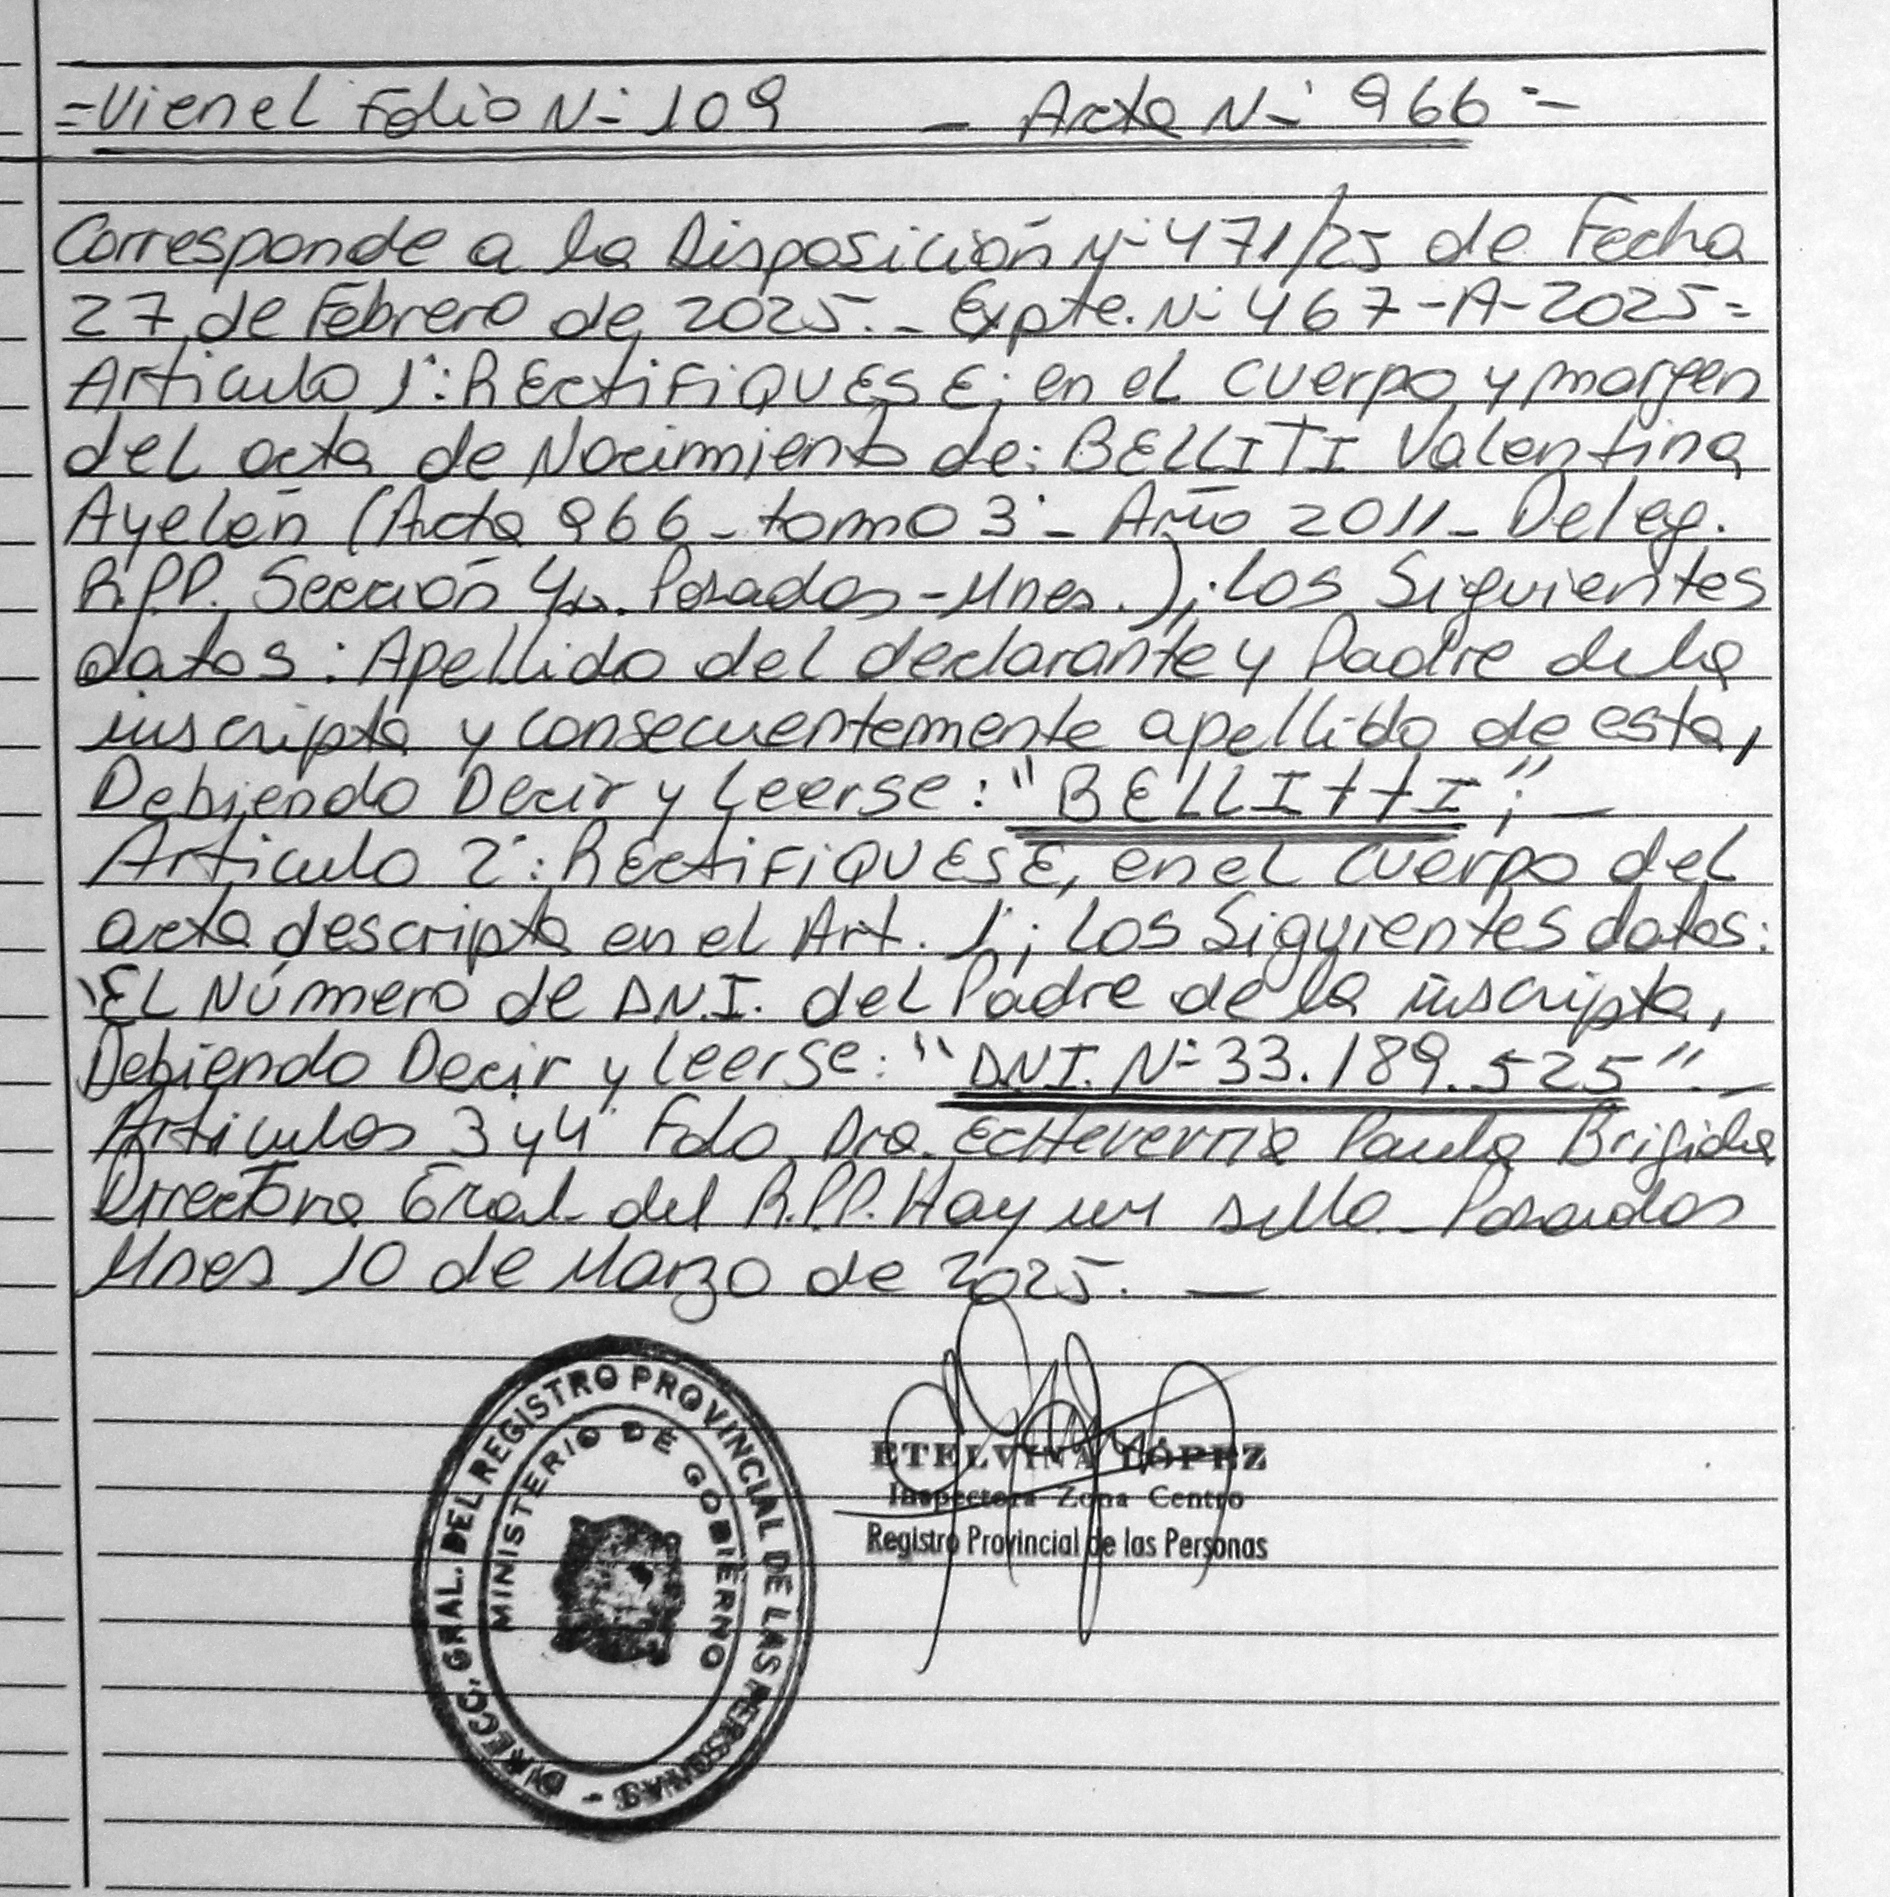 =Vienel Folio Nº 109 - Acta Nº 966=
Corresponde a la Disposición Nº 471/25 de Fecha
27 de Febrero de 2025.- Expte. Nº 467-A-2025=
Articulo 1º: RECtiFiQUESE; en el cuerpo y margen
del acta de Nacimiento de: BELLITI Valentina
Ayelén (Acta 966 - tomo 3º - Año 2011 - Deleg.
R.P.P. Sección 4ta. Posadas - Mnes.); Los Siguientes
datos: Apellido del declarante y Padre de la
inscripta y consecuentemente apellido de esta,
Debiendo Decir y Leerse: "BELLIttI"; -
Articulo 2º: RECtiFiQUESE, en el cuerpo del
acta descripta en el Art. 1º; Los Siguientes datos:
"EL Número de D.N.I. del Padre de la inscripta,
Debiendo Decir y Leerse: "D.N.I. Nº 33.189.525". -
Articulos 3 y 4º Fdo. Dra. Echeverria Paula Brigida
Directora Gral del R.P.P. Hay un sello - Posadas
Mnes 10 de Marzo de 2025. -
DIRECC. GRAL. DEL REGISTRO PROVINCIAL DE LAS PERSONAS -
MINISTERIO DE GOBIERNO
ETELVINA LÓPEZ
Inspectora Zona Centro
Registro Provincial de las Personas